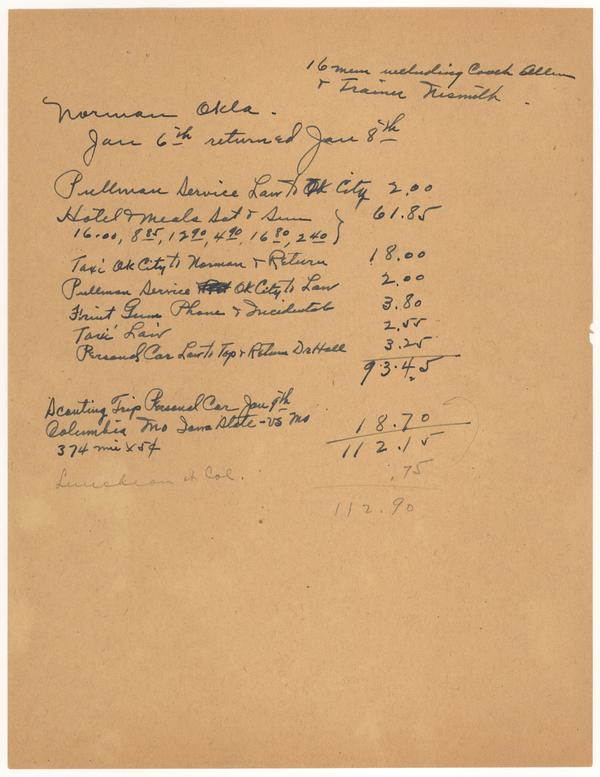 16 men including Coach Allen
& Trainer Nesmith.
Norman Okla.
Jan 6th returned Jan 8th
Pullman Service Law to Ok City 2.00
Hotel & Meals Sat & Sun } 61.85
16.00, 8 85, 12 90, 4 90, 16 80, 2 40
Taxi Ok City to Norman & Return 18.00
Pullman Service Ok City to Law 2.00
Fruit Gum Phone & Incidentals 3.80
Taxi Law 2.55
Personal Car Law to Top & Return Dr Hall 3.25
93.45
Scouting Trip Personal Car Jan 9th
Columbia Mo Iowa State - vs Mo 18.70
374 mi x 5¢ 112.15
Luncheon at Col. .75
112.90